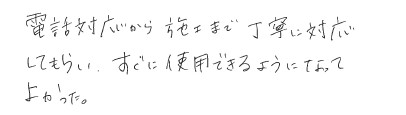 電話対応から施工まで丁寧に対応
してもらい、すぐに使用できるようになって
よかった。